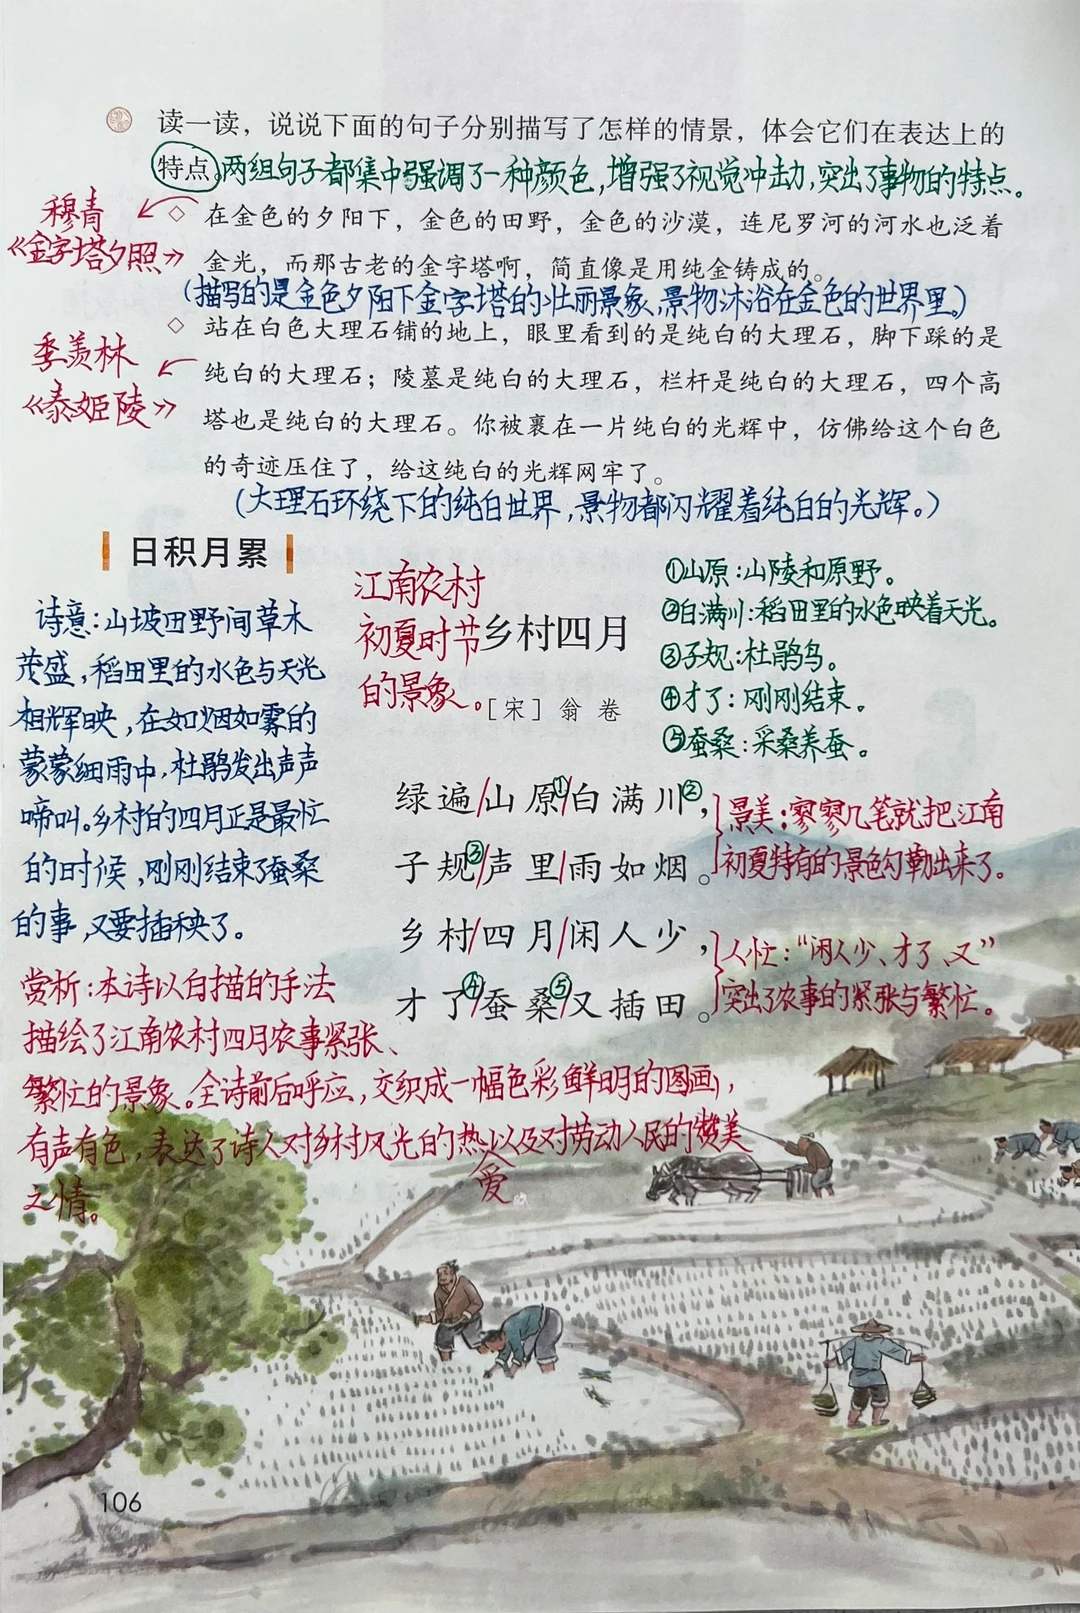 读一读，说说下面的句子分别描写了怎样的情景，体会它们在表达上的
特点。两组句子都集中强调了一种颜色，增强了视觉冲击力，突出了事物的特点。
穆青
《金字塔夕照》
◇ 在金色的夕阳下，金色的田野，金色的沙漠，连尼罗河的河水也泛着
金光，而那古老的金字塔啊，简直像是用纯金铸成的。
(描写的是金色夕阳下金字塔的壮丽景象、景物沐浴在金色的世界里。)
季羡林
《泰姬陵》
◇ 站在白色大理石铺的地上，眼里看到的是纯白的大理石，脚下踩的是
纯白的大理石；陵墓是纯白的大理石，栏杆是纯白的大理石，四个高
塔也是纯白的大理石。你被裹在一片纯白的光辉中，仿佛给这个白色
的奇迹压住了，给这纯白的光辉网牢了。
(大理石环绕下的纯白世界，景物都闪耀着纯白的光辉。)
日积月累
诗意：山坡田野间草木
茂盛，稻田里的水色与天光
相辉映，在如烟如雾的
蒙蒙细雨中，杜鹃发出声声
啼叫。乡村的四月正是最忙
的时候，刚刚结束了蚕桑
的事，又要插秧了。
江南农村
初夏时节
的景象。
乡村四月
［宋］翁卷
①山原：山陵和原野。
②白满川：稻田里的水色映着天光。
③子规：杜鹃鸟。
④才了：刚刚结束。
⑤蚕桑：采桑养蚕。
绿遍/山原①/白满川②，
子规③/声里/雨如烟。
景美：寥寥几笔就把江南
初夏特有的景色勾勒出来了。
乡村/四月/闲人少，
才了④/蚕桑⑤/又插田。
人忙：“闲人少、才了、又”
突出了农事的紧张与繁忙。
赏析：本诗以白描的手法
描绘了江南农村四月农事紧张、
繁忙的景象。全诗前后呼应，交织成一幅色彩鲜明的图画，
有声有色，表达了诗人对乡村风光的热爱以及对劳动人民的赞美
之情。
106